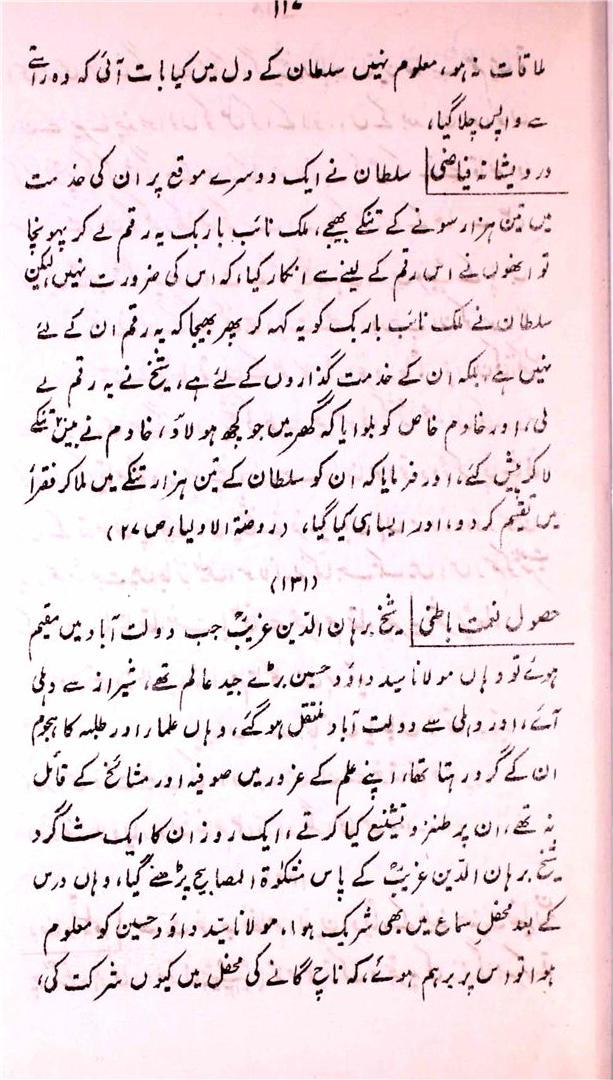 ۱۱۷
ملاقات نہ ہو، معلوم نہیں سلطان کے دل میں کیا بات آئی کہ وہ راستے
سے واپس چلا گیا،
درویشانہ فیاضی سلطان نے ایک دوسرے موقع پر ان کی خدمت
میں تین ہزار سونے کے تنکے بھیجے، ملک نائب باربک یہ رقم لے کر پہونچا
تو انھوں نے اس رقم کے لینے سے انکار کیا، کہ اس کی ضرورت نہیں، لیکن
سلطان نے ملک نائب باربک کو یہ کہہ کر پھر بھیجا کہ یہ رقم ان کے لئے
نہیں ہے، بلکہ ان کے خدمت گذاروں کے لئے ہے، شیخ نے یہ رقم لے
لی، اور خادم خاص کو بلوایا کہ گھر میں جو کچھ ہو لاؤ، خادم نے بیس تنکے
لا کر پیش کئے، اور فرمایا کہ ان کو سلطان کے تین ہزار تنکے میں ملا کر فقراً
میں تقیم کر دو، اور ایسا ہی کیا گیا، (روضۃ الاولیاء ص ۲۷)
(۱۳۱)
حصول نعمت باطنی شیخ برہان الدین غریبؒ جب دولت آباد میں مقیم
ہوئے تو وہاں مولانا سید داؤد حسین بڑے جید عالم تھے، شیراز سے دہلی
آئے، اور دہلی سے دولت آباد منتقل ہو گئے، وہاں علماء اور طلبہ کا ہجوم
ان کے گرد رہتا تھا، اپنے علم کے غرور میں صوفیہ اور مشائخ کے قائل
نہ تھے، ان پر طنز و تشنیع کیا کرتے، ایک روز ان کا ایک شاگرد
شیخ برہان الدین غریبؒ کے پاس مشکوٰۃ المصابیح پڑھنے گیا، وہاں درس
کے بعد محفلِ سماع میں بھی شریک ہوا، مولانا سیّد داؤد حسین کو معلوم
ہوا تو اس پر برہم ہوئے، کہ ناچ گانے کی محفل میں کیوں شرکت کی،